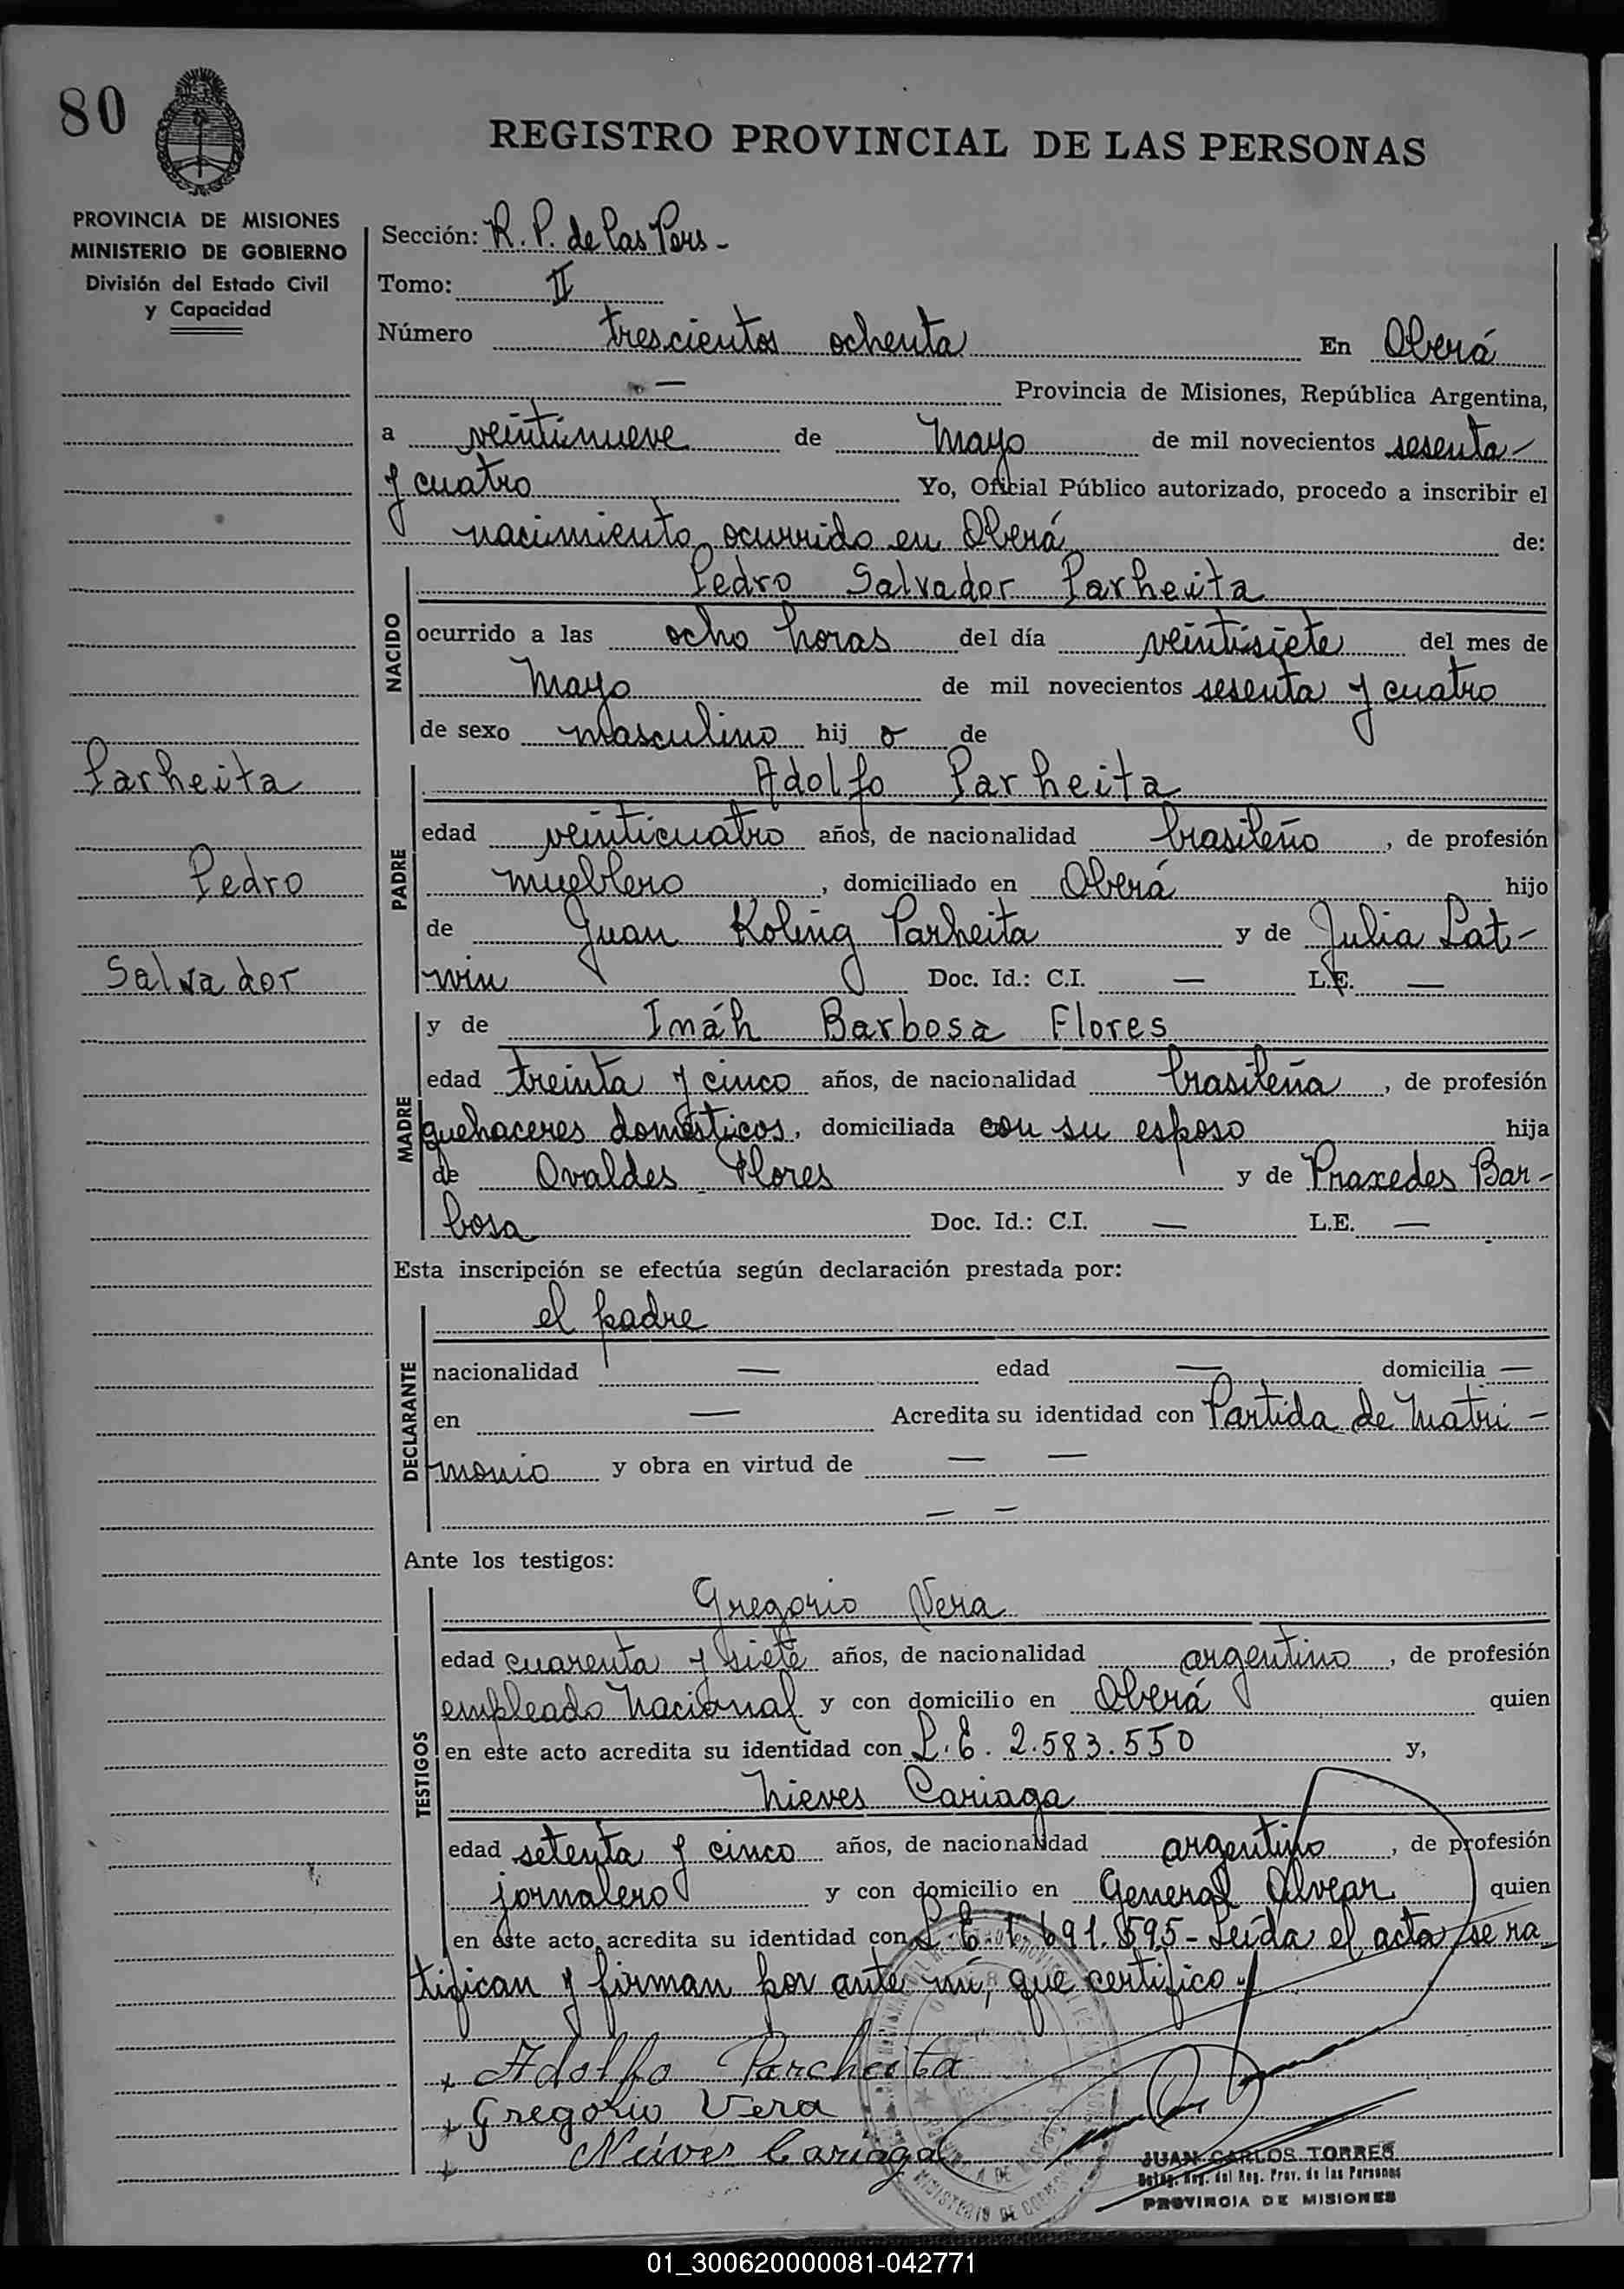 80
REGISTRO PROVINCIAL DE LAS PERSONAS
PROVINCIA DE MISIONES
MINISTERIO DE GOBIERNO
División del Estado Civil
y Capacidad
Parheita
Pedro
Salvador
Sección: R. P. de las Pers -
Tomo: II
Número trescientos ochenta En Oberá
— Provincia de Misiones, República Argentina,
a veintinueve de Mayo de mil novecientos sesenta -
y cuatro Yo, Oficial Público autorizado, procedo a inscribir el
nacimiento ocurrido en Oberá de:
NACIDO
Pedro Salvador Parheita
ocurrido a las ocho horas del día veintisiete del mes de
Mayo de mil novecientos sesenta y cuatro
de sexo masculino hij o de
PADRE
Adolfo Parheita
edad veinticuatro años, de nacionalidad brasileño, de profesión
mueblero, domiciliado en Oberá hijo
de Juan Koling Parheita y de Julia Lat-
win Doc. Id.: C.I. — L.E. —
MADRE
y de Ináh Barbosa Flores
edad treinta y cinco años, de nacionalidad brasileña, de profesión
quehaceres domésticos, domiciliada con su esposo hija
de Ovaldes Flores y de Praxedes Bar-
bosa Doc. Id.: C.I. — L.E. —
Esta inscripción se efectúa según declaración prestada por:
DECLARANTE
el padre
nacionalidad — edad — domicilia —
en — Acredita su identidad con Partida de Matri-
monio y obra en virtud de — —
— —
Ante los testigos:
TESTIGOS
Gregorio Vera
edad cuarenta y siete años, de nacionalidad argentino, de profesión
empleado Nacional y con domicilio en Oberá quien
en este acto acredita su identidad con L.E. 2.583.550 y,
Nieves Cariaga
edad setenta y cinco años, de nacionalidad argentino, de profesión
jornalero y con domicilio en General Alvear quien
en este acto acredita su identidad con L.E. 1.691.595 - Leída el acta se ra-
tifican y firman por ante mí, que certifico.-
x Adolfo Parcheita
x Gregorio Vera
x Neives Cariaga
MINISTERIO DE
JUAN CARLOS TORRES
Reg. del Reg. Prov. de las Personas
PROVINCIA DE MISIONES
01_300620000081-042771